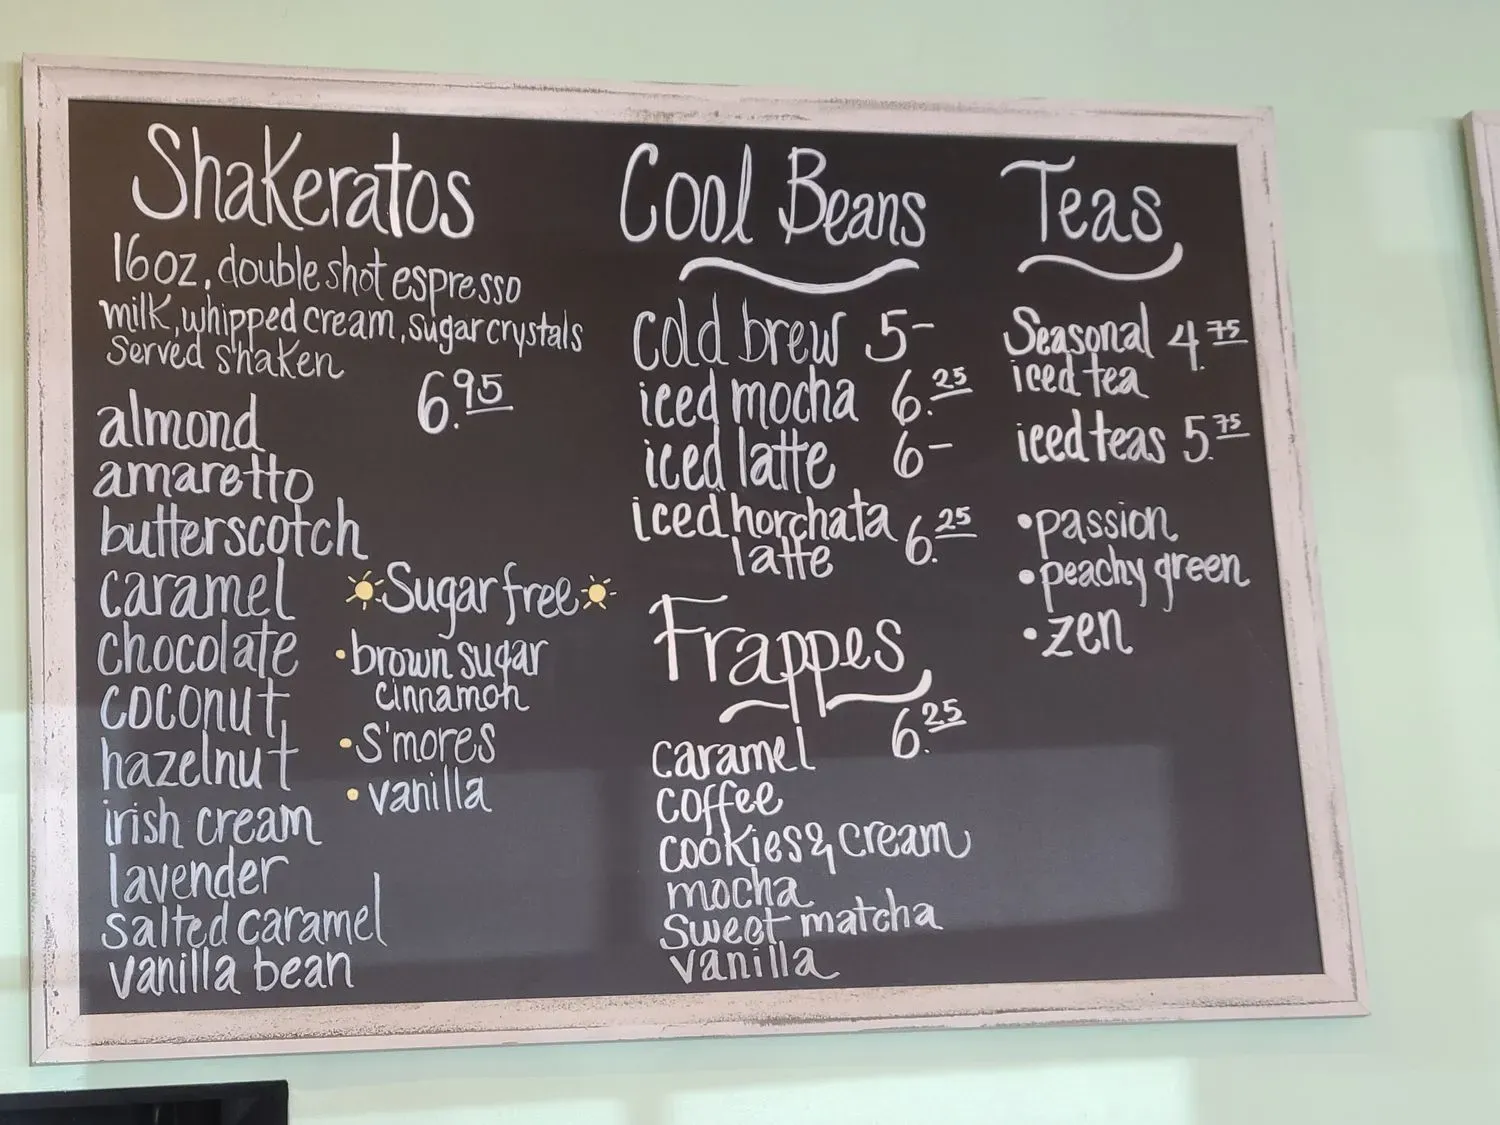 Shakeratos
16oz. double shot espresso
milk, whipped cream, sugar crystals
served shaken
6.95
almond
amaretto
butterscotch
caramel
chocolate
coconut
hazelnut
irish cream
lavender
salted caramel
vanilla bean
Sugar free
•brown sugar
cinnamon
•S'mores
•vanilla
Cool Beans
cold brew 5-
iced mocha 6.25
iced latte 6-
iced horchata 6.25
latte
Frappes
6.25
caramel
coffee
cookies & cream
mocha
sweet matcha
vanilla
Teas
Seasonal 4.75
iced tea
iced teas 5.75
•passion
•peachy green
•zen